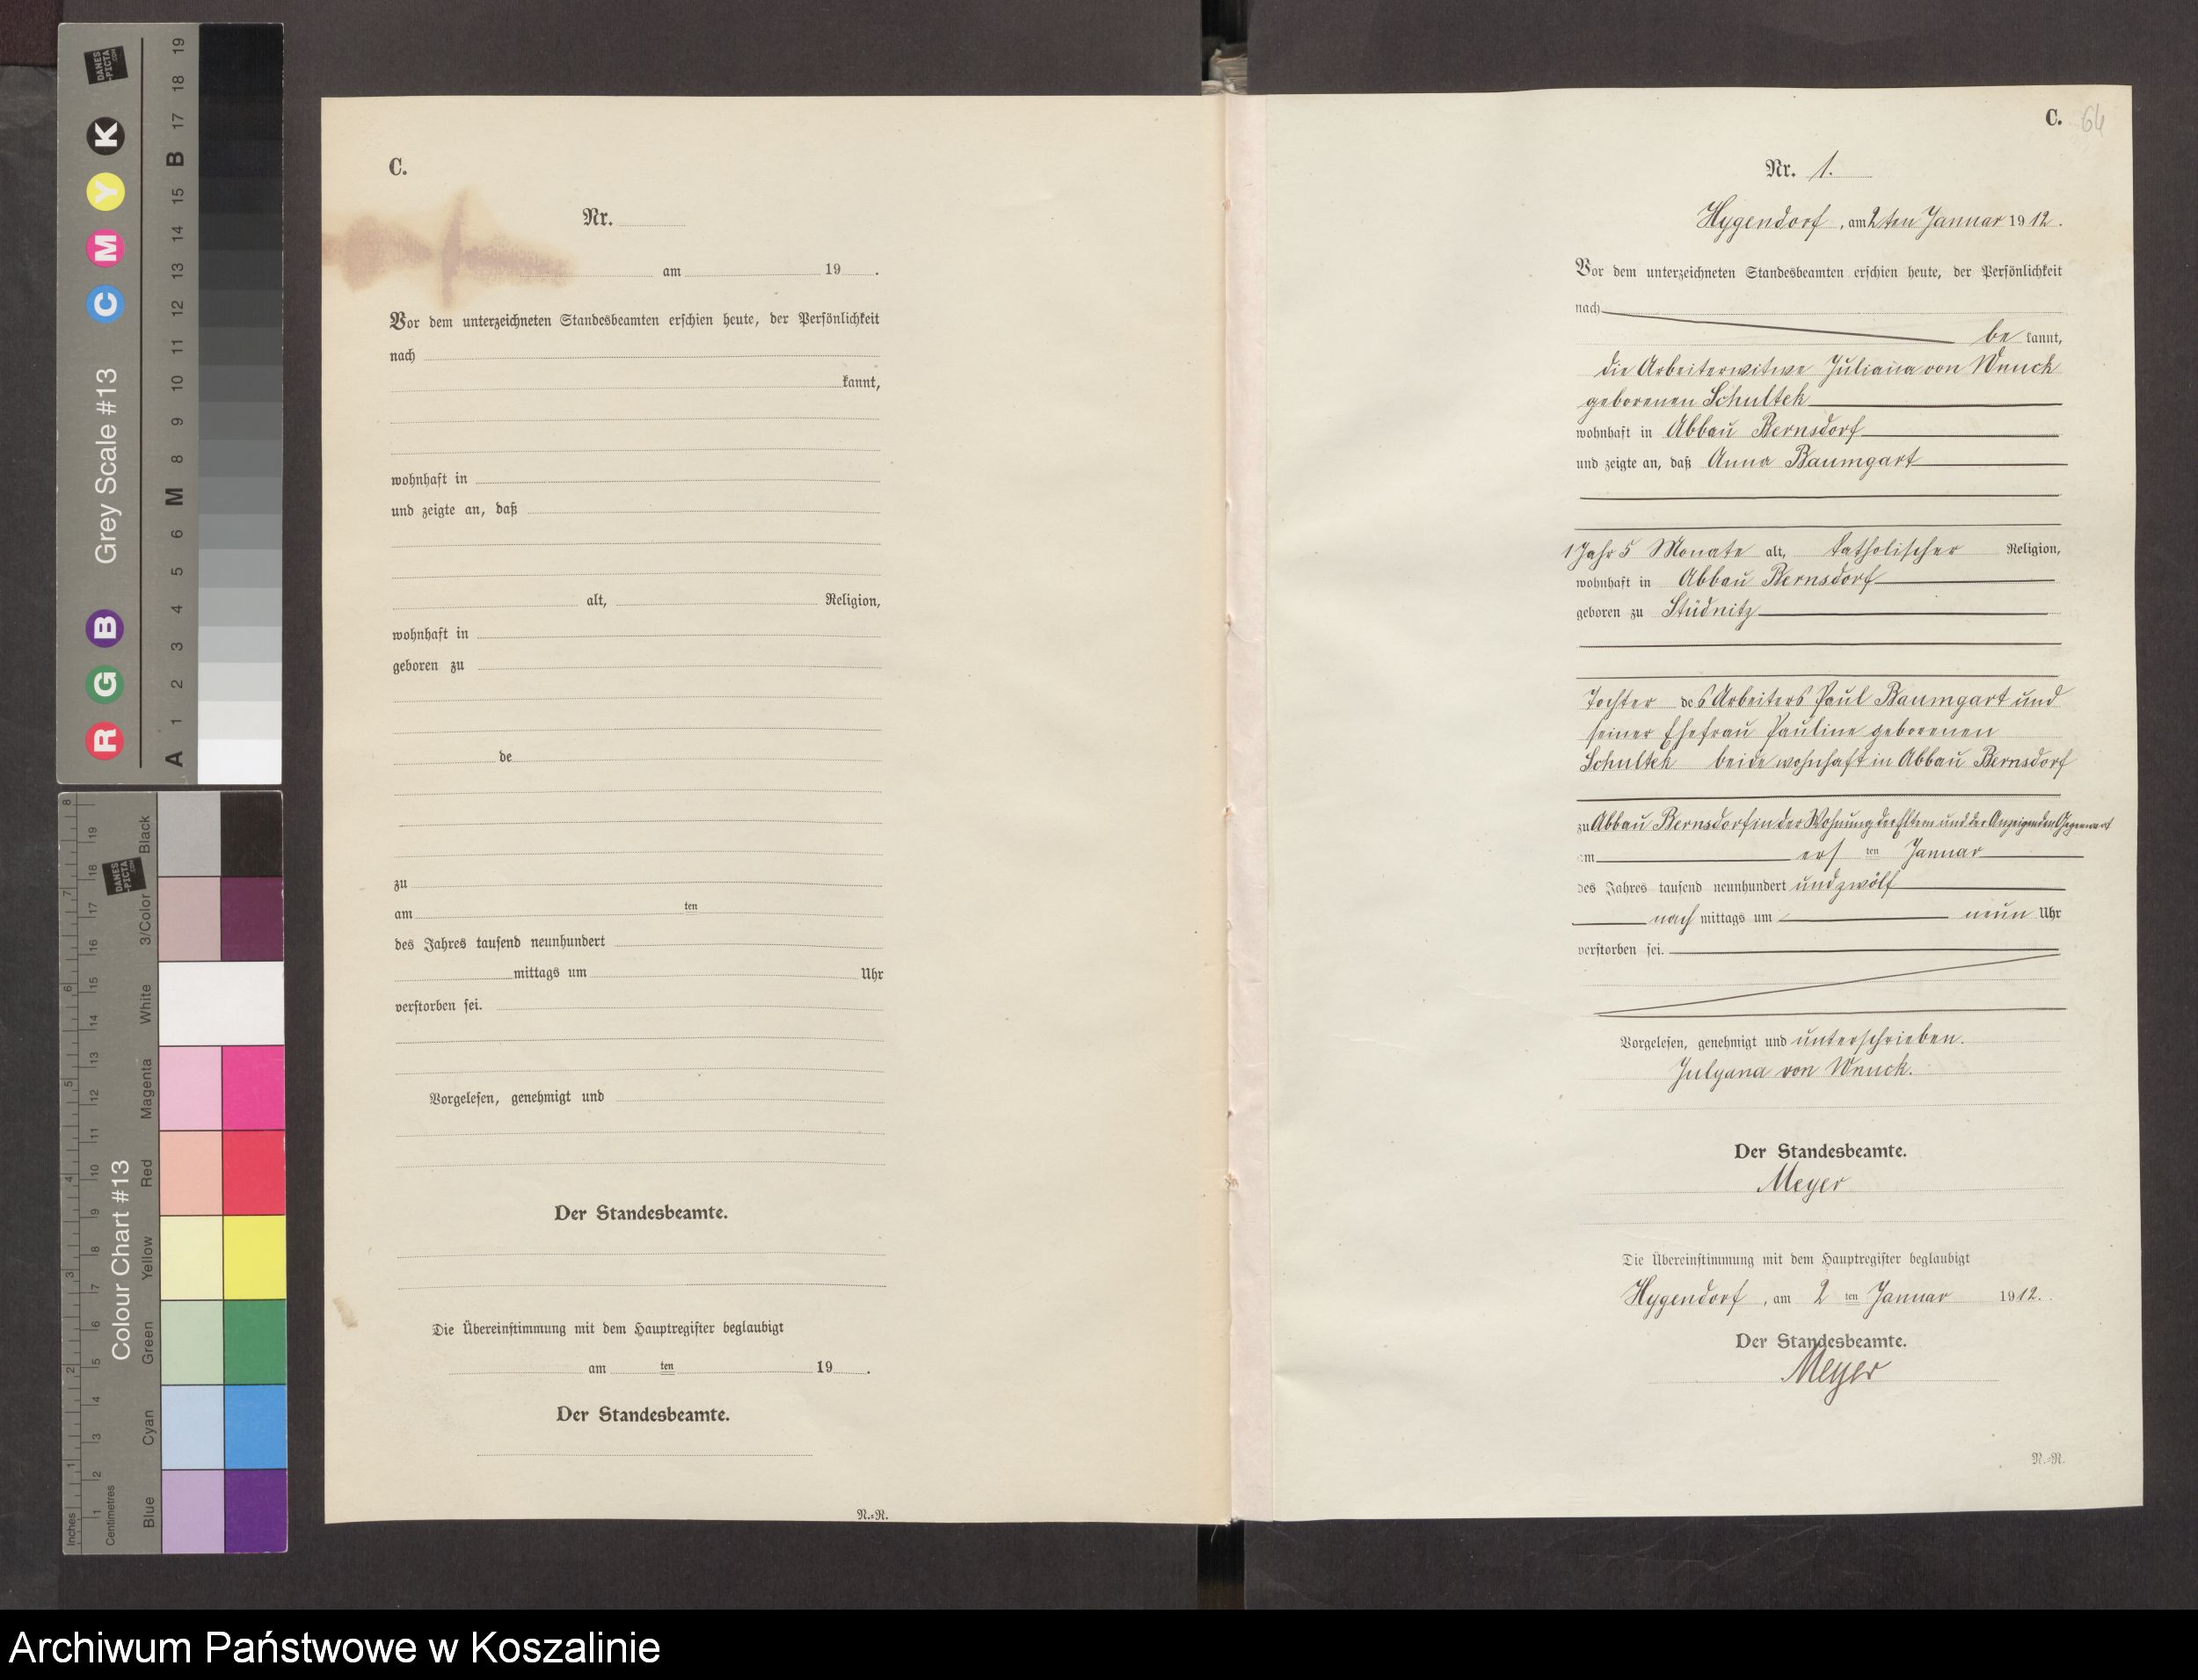 C.
Nr.
am 19 .
Vor dem unterzeichneten Standesbeamten erschien heute, der Persönlichkeit
nach
kannt,
wohnhaft in
und zeigte an, daß
alt, Religion,
wohnhaft in
geboren zu
de
zu
am ten
des Jahres tausend neunhundert
mittags um Uhr
verstorben sei.
Vorgelesen, genehmigt und
Der Standesbeamte.
Die Übereinstimmung mit dem Hauptregister beglaubigt
am ten 19 .
Der Standesbeamte.
N.-R.
C. 64
Nr. 1.
Hygendorf, am 2ten Januar 1912.
Vor dem unterzeichneten Standesbeamten erschien heute, der Persönlichkeit
nach
be kannt,
die Arbeiterwitwe Juliana von Wnuck
geborenen Schultek
wohnhaft in Abbau Bernsdorf
und zeigte an, daß Anna Baumgart
1 Jahr 5 Monate alt, katholischer Religion,
wohnhaft in Abbau Bernsdorf
geboren zu Stüdnitz
Tochter des Arbeiters Paul Baumgart und
seiner Ehefrau Pauline geborenen
Schultek beide wohnhaft in Abbau Bernsdorf
zu Abbau Bernsdorf in der Wohnung der Eltern und der Anzeigenden Gegenwart
am ers ten Januar
des Jahres tausend neunhundert und zwölf
nach mittags um neun Uhr
verstorben sei.
Vorgelesen, genehmigt und unterschrieben.
Julyana von Wnuck.
Der Standesbeamte.
Meyer
Die Übereinstimmung mit dem Hauptregister beglaubigt
Hygendorf, am 2 ten Januar 1912.
Der Standesbeamte.
Meyer
N.-R.
Grey Scale #13
R G B C M Y K
A 1 2 3 4 5 6 M 8 9 10 11 12 13 14 15 B 17 18 19
DANES-PICTA.COM
Colour Chart #13
Blue Cyan Green Yellow Red Magenta White 3/Color Black
Inches 1 2 3 4 5 6 7 8
Centimetres 1 2 3 4 5 6 8 9 10 11 12 13 14 15 16 17 18 19
DANES-PICTA.COM
Archiwum Państwowe w Koszalinie